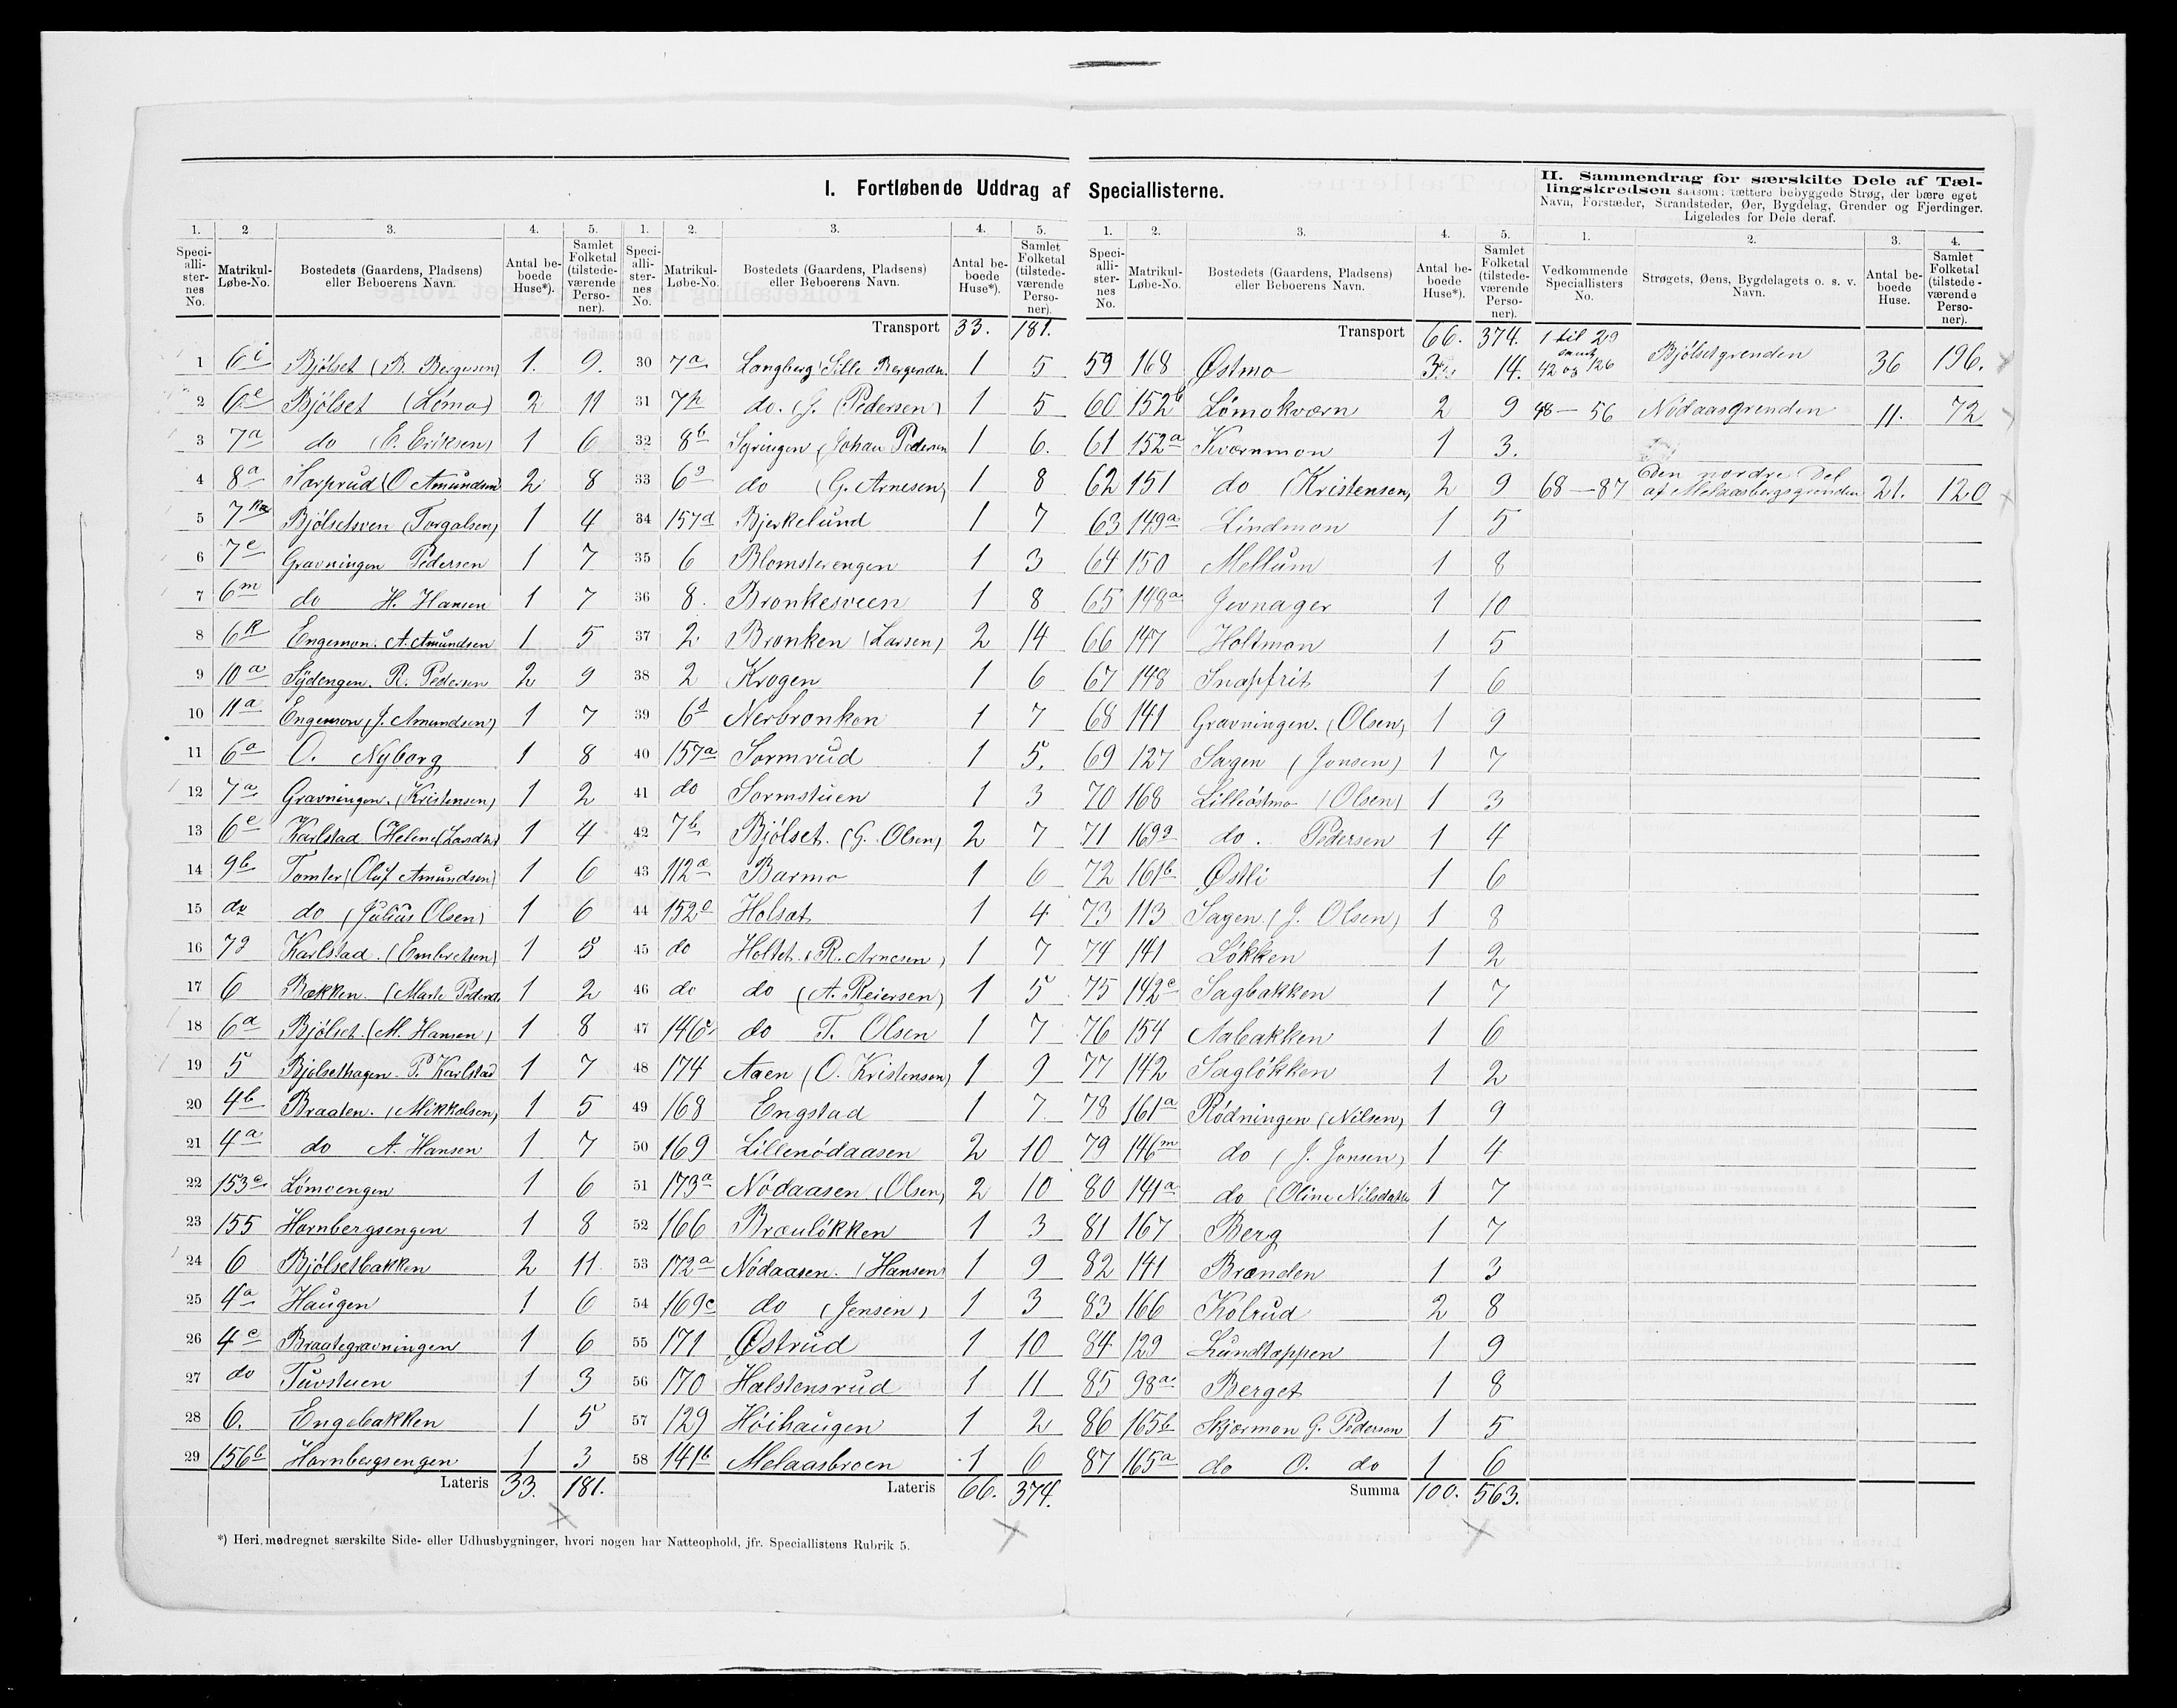 I. Fortløbende Uddrag af Speciallisterne.
1. 2 3. 4. 5.
Speciallisternes No. Matrikul-Løbe-No. Bostedets (Gaardens, Pladsens) eller Beboerens Navn. Antal beboede Huse*). Samlet Folketal (tilstedeværende Personer).
1 6i Bjølset (B. Bergersen) 1. 9.
2 6e Bjølset (Lømo) 2 11
3 7a do (E. Eriksen) 1 6
4 8a Sarprud (O Amundsen 2 8
5 7 Bjølsetsven (Torgalsen) 1 4
6 7e Gravningen Pedersen 1 7
7 6m do H. Hansen 1 7
8 6k Engemon. A. Amundsen 1 5
9 10a Sydengen. R. Pedersen 2 9
10 11a Engemon (J. Amundsen) 1 7
11 6a O. Nyborg 1 8
12 7a Gravningen. (Kristensen) 1 2
13 6e Karlstad (Helene Larsdtr) 1 4
14 9b Tomter (Oluf Amundsen) 1 6
15 do do (Julius Olsen) 1 6
16 7g Karlstad. (Embretsen) 1 5
17 6 Bækken. (Marte Pedersd. 1 2
18 6a Bjølset. (M. Hansen) 1 8
19 5 Bjølsethagen P. Karlstad 1 7
20 4b Braaten. (Mikkelsen) 1 5
21 4a do A. Hansen 1 7
22 153c Lømoengen 1 6
23 155 Hornbergsengen 1 8
24 6 Bjølsetbakken 2 11
25 4a Haugen 1 6
26 4c Braategravningen 1 6
27 do Tuvstuen 1 3
28 6. Engebakken 1 5
29 156b Hornbergsengen 1 3
Lateris 33. 181.
1. 2. 3. 4. 5.
Speciallisternes No. Matrikul-Løbe-No. Bostedets (Gaardens, Pladsens) eller Beboerens Navn. Antal beboede Huse*). Samlet Folketal (tilstedeværende Personer).
Transport 33. 181.
30 7a Langberg Sille Bergersdtr. 1 5
31 7h do. (J. Pedersen) 1 5
32 8b Syringen (Johan Pedersen 1 6.
33 6g do (G. Arnesen) 1 8
34 157d Bjerkelund 1 7
35 6 Blomsterengen 1 3
36 8. Bronkesveen 1 8
37 2. Bronken (Larsen) 2 14
38 2 Krogen 1 6
39 6d Nerbronken 1 7
40 157a Sormrud 1 5.
41 do Sormstuen 1 3
42 7b Bjølset. (G. Olsen) 2 7
43 112a Barmo 1 6
44 152 Holsæt 1 4
45 do Holtet (R. Arnesen) 1 7
46 do do (A. Reiersen) 1 5
47 146 do T. Olsen 1 7
48 174 Aaen (O. Kristensen) 1 9
49 168 Engstad 1 7
50 169 Lillenødaasen 2 10
51 173a Nødaasen (Olsen) 2 10
52 166 Bræuløkken 1 3
53 172a Nødaasen. (Hansen) 1 9
54 169c do (Jensen) 1 3
55 171 Østrud 1 10
56 170 Halstensrud 1 11
57 129 Høihaugen 1 2
58 141b Melaasbroen 1 6
Lateris 66. 374.
1. 2. 3. 4. 5.
Speciallisternes No. Matrikul-Løbe-No. Bostedets (Gaardens, Pladsens) eller Beboerens Navn. Antal beboede Huse*). Samlet Folketal (tilstedeværende Personer).
Transport 66. 374.
59 168 Østmo 3 14.
60 152b Lømokværn 2 9
61 152a Kværnmon 1 3.
62 151 do (Kristensen) 2 9
63 149a Lindmon 1 5
64 150 Mellum 1 8
65 148a Jevnager 1 10
66 147 Holtmon 1 5
67 148 Snapfrit 1 6
68 141 Gravningen. (Olsen) 1 9
69 127 Sagen (Jonsen) 1 7
70 168 Lilleøstmo (Olsen) 1 3
71 169g do. Pedersen 1 4
72 161b Østli 1 6
73 113 Sagen. (J. Olsen) 1 8
74 141 Løkken 1 2
75 142c Sagbakken 1 7
76 154 Aabakken 1 6
77 142 Sagløkken 1 2
78 161a Rødningen (Nilsen) 1 9
79 146m do (J. Jonsen) 1 4
80 141a do (Oline Nilsdatter 1 7
81 167 Berg 1 7
82 141 Brænden 1 3
83 166 Kolrud 2 8
84 129 Lundtoppen 1 9
85 98a Berget 1 8
86 165b Skjærmon G. Pedersen 1 5
87 165a do O. do 1 6
Summa 100. 563.
II. Sammendrag for særskilte Dele af Tællingskredsen saasom: tættere bebyggede Strøg, der bære eget
Navn, Forstæder, Strandsteder, Øer, Bygdelag, Grender og Fjerdinger.
Ligeledes for Dele deraf.
1. 2. 3. 4.
Vedkommende Speciallisters No. Strøgets, Øens, Bygdelagets o. s. v. Navn. Antal beboede Huse. Samlet Folketal (tilstedeværende Personer).
1 til 29 samt 42 og 126 Bjølsetgrenden 36 196.
48 — 56 Nødaasgrenden 11. 72
68 — 87 Den nordre Del af Melaasbergsgrenden 21. 120
*) Heri medregnet særskilte Side- eller Udhusbygninger, hvori nogen har Natteophold, jfr. Speciallistens Rubrik 5.